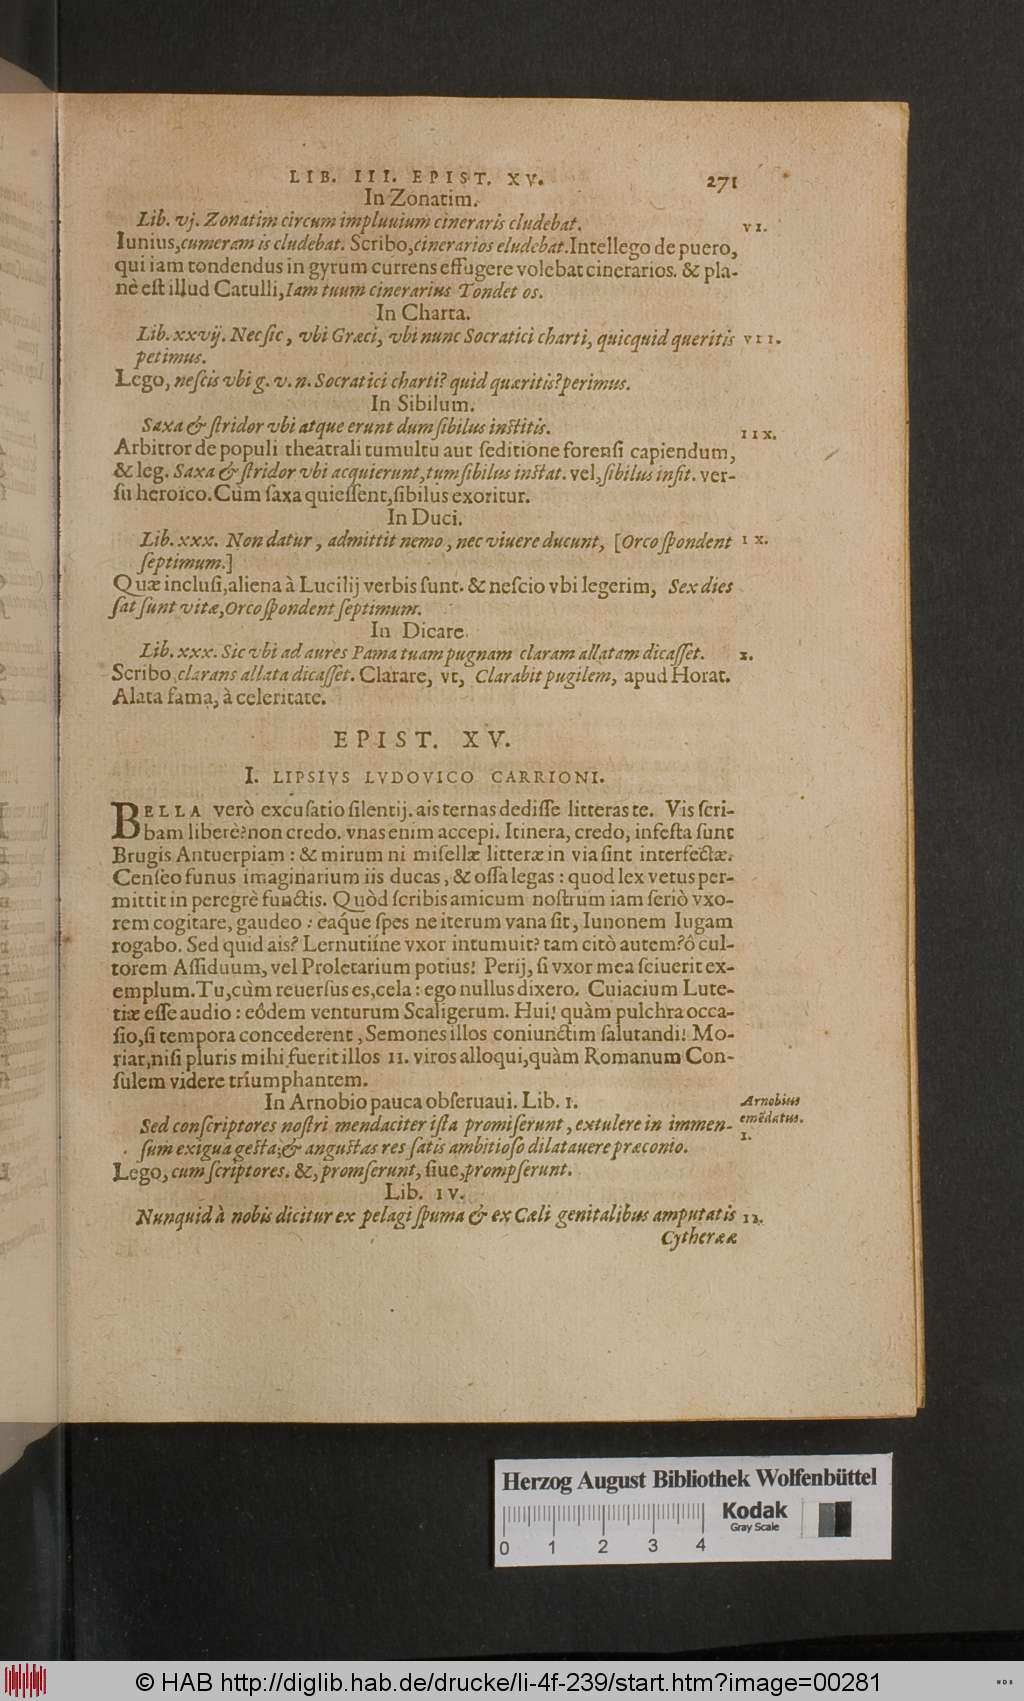 LIB. III. EPIST. XV. 271
In Zonatim.
Lib. vj. Zonatim circum impluuium cineraris cludebat. VI.
Iunius, cumeram is cludebat. Scribo, cinerarios eludebat. Intellego de puero,
qui iam tondendus in gyrum currens effugere volebat cinerarios. & pla-
nè est illud Catulli, Iam tuum cinerarius Tondet os.
In Charta.
Lib. xxvij. Nec sic, vbi Græci, vbi nunc Socratici charti, quicquid queritis VII.
petimus.
Lego, nescis vbi g. v. n. Socratici charti? quid quæritis? perimus.
In Sibilum.
Saxa & stridor vbi atque erunt dum sibilus institis.
IIX.
Arbitror de populi theatrali tumultu aut seditione forensi capiendum,
& leg. Saxa & stridor vbi acquierunt, tum sibilus instat. vel, sibilus insit. ver-
su heroico. Cùm saxa quiessent, sibilus exoritur.
In Duci.
Lib. xxx. Non datur, admittit nemo, nec viuere ducunt, [Orco spondent IX.
septimum.]
Quæ inclusi, aliena à Lucilij verbis sunt. & nescio vbi legerim, Sex dies
sat sunt vitæ, Orco spondent septimum.
In Dicare.
Lib. xxx. Sic vbi ad aures Pama tuam pugnam claram allatam dicasset. X.
Scribo clarans allata dicasset. Clarare, vt, Clarabit pugilem, apud Horat.
Alata fama, à celeritate.
EPIST. XV.
I. LIPSIVS LVDOVICO CARRIONI.
BELLA verò excusatio silentij. ais ternas dedisse litteras te. Vis scri-
bam liberè? non credo. vnas enim accepi. Itinera, credo, infesta sunt
Brugis Antuerpiam: & mirum ni misellæ litteræ in via sint interfectæ.
Censeo funus imaginarium iis ducas, & ossa legas: quod lex vetus per-
mittit in peregrè functis. Quòd scribis amicum nostrum iam seriò vxo-
rem cogitare, gaudeo: eáque spes ne iterum vana sit, Iunonem Iugam
rogabo. Sed quid ais? Lernutiíne vxor intumuit? tam citò autem? ô cul-
torem Assiduum, vel Proletarium potius! Perij, si vxor mea sciuerit ex-
emplum. Tu, cùm reuersus es, cela: ego nullus dixero. Cuiacium Lute-
tiæ esse audio: eódem venturum Scaligerum. Hui! quàm pulchra occa-
sio, si tempora concederent, Semones illos coniunctim salutandi! Mo-
riar, nisi pluris mihi fuerit illos II. viros alloqui, quàm Romanum Con-
sulem videre triumphantem.
In Arnobio pauca obseruaui. Lib. I.
Arnobius
emēdatus.
I.
Sed conscriptores nostri mendaciter ista promiserunt, extulere in immen-
sum exigua gesta; & angustas res satis ambitioso dilatauere præconio.
Lego, cum scriptores. &, promserunt, siue, prompserunt.
Lib. IV.
Nunquid à nobis dicitur ex pelagi spuma & ex Cæli genitalibus amputatis II.
Cytherææ
Herzog August Bibliothek Wolfenbüttel
Kodak
Gray Scale
0 1 2 3 4
© HAB http://diglib.hab.de/drucke/li-4f-239/start.htm?image=00281